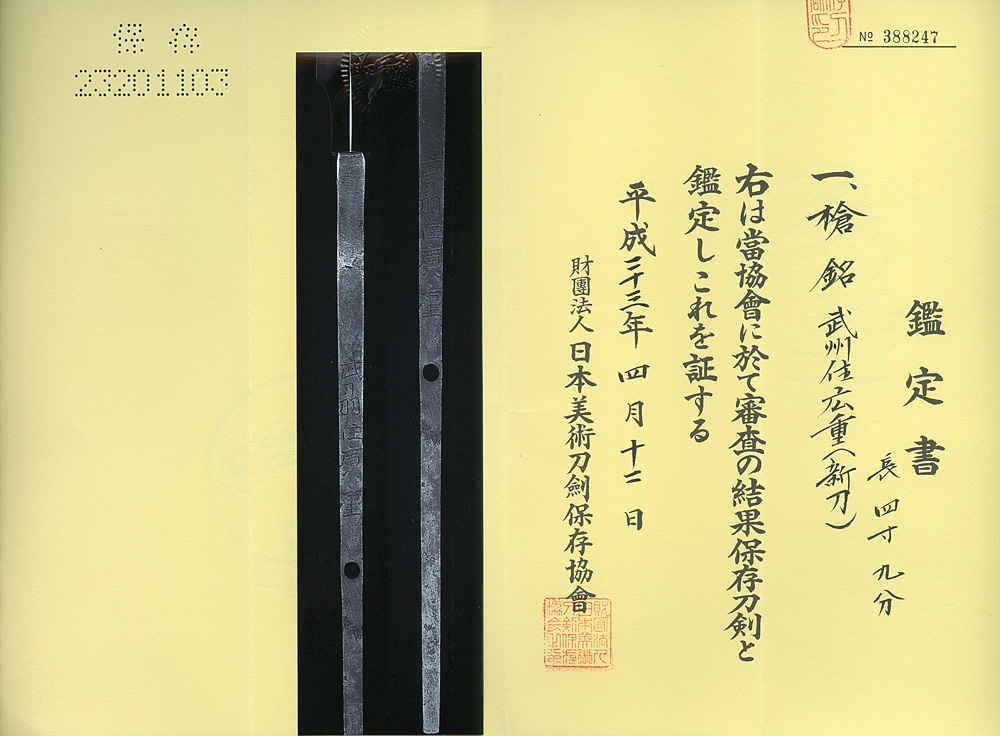 鑑定書
一、槍 銘 武州住広重(新刀)
長四寸九分
右は當協會に於て審査の結果保存刀剣と
鑑定しこれを証する
平成二十三年四月十二日
財團法人日本美術刀劍保存協會
№ 388247
保存
23201103
武州住廣重
武州住廣重